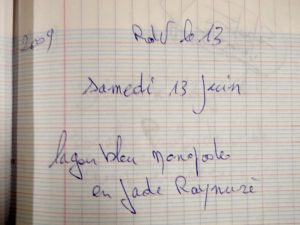 2009
RdV le 13
Samedi 13 Juin
lagon bleu
en Jade